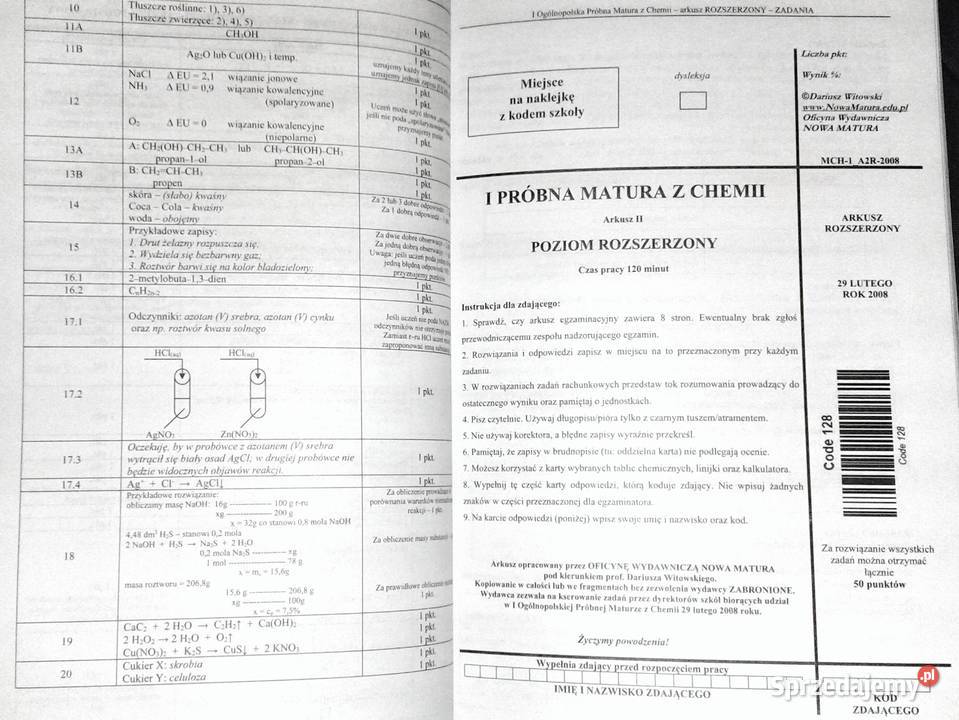 10 Tłuszcze roślinne: 1), 3), 6)
Tłuszcze zwierzęce: 2), 4), 5)
11A CH3OH 1 pkt.
11B Ag2O lub Cu(OH)2 i temp. 1 pkt.
12 NaCl Δ EU = 2,1 wiązanie jonowe 1 pkt.
NH3 Δ EU = 0,9 wiązanie kowalencyjne 1 pkt.
(spolaryzowane)
O2 Δ EU = 0 wiązanie kowalencyjne
(niepolarne)
13A A: CH2(OH)-CH2-CH3 lub CH3-CH(OH)-CH3 1 pkt.
propan-1-ol propan-2-ol
13B B: CH2=CH-CH3 1 pkt.
propen
14 skóra - (słabo) kwaśny
Coca - Cola - kwaśny
woda - obojętny
15 Przykładowe zapisy:
1. Drut żelazny rozpuszcza się.
2. Wydziela się bezbarwny gaz;
3. Roztwór barwi się na kolor bladozielony;
16.1 2-metylobuta-1,3-dien 1 pkt.
16.2 CnH2n-2 1 pkt.
17.1 Odczynniki: azotan (V) srebra, azotan (V) cynku
oraz np. roztwór kwasu solnego
17.2 HCl(aq) HCl(aq) 1 pkt.
AgNO3 Zn(NO3)2
17.3 Oczekuję, by w probówce z azotanem (V) srebra
wytrącił się biały osad AgCl, w drugiej probówce nie
będzie widocznych objawów reakcji. 1 pkt.
17.4 Ag+ + Cl- → AgCl↓ 1 pkt.
18 Przykładowe rozwiązanie:
obliczamy masę NaOH: 16g ---------- 100 g r-ru
xg ---------- 200 g
x = 32g co stanowi 0,8 mola NaOH
4,48 dm3 H2S – stanowi 0,2 mola
2 NaOH + H2S → Na2S + 2 H2O
0,2 mola Na2S ---------- xg
1 mol ---------- 78 g
x = ms = 15,6g
masa roztworu = 206,8g
15,6 g ---------- 206,8 g
xg ---------- 100g
x = cp = 7,5%
Za obliczenie
porównania warunków
reakcji – 1 pkt.
Za obliczenie masy
Za prawidłowe obliczenie
1 pkt.
19 CaC2 + 2 H2O → C2H2↑ + Ca(OH)2 1 pkt.
2 H2O2 → 2 H2O + O2↑ 1 pkt.
Cu(NO3)2 + K2S → CuS↓ + 2 KNO3 1 pkt.
20 Cukier X: skrobia 1 pkt.
Cukier Y: celuloza 1 pkt.
I Ogólnopolska Próbna Matura z Chemii – arkusz ROZSZERZONY – ZADANIA
Miejsce
na naklejkę
z kodem szkoły
dysleksja
Liczba pkt:
Wynik %:
©Dariusz Witowski
www.NowaMatura.edu.pl
Oficyna Wydawnicza
NOWA MATURA
MCH-1_A2R-2008
I PRÓBNA MATURA Z CHEMII
Arkusz II
POZIOM ROZSZERZONY
Czas pracy 120 minut
ARKUSZ
ROZSZERZONY
29 LUTEGO
ROK 2008
Instrukcja dla zdającego:
1. Sprawdź, czy arkusz egzaminacyjny zawiera 8 stron. Ewentualny brak zgłoś
przewodniczącemu zespołu nadzorującego egzamin.
2. Rozwiązania i odpowiedzi zapisz w miejscu na to przeznaczonym przy każdym
zadaniu.
3. W rozwiązaniach zadań rachunkowych przedstaw tok rozumowania prowadzący do
ostatecznego wyniku oraz pamiętaj o jednostkach.
4. Pisz czytelnie. Używaj długopisu/pióra tylko z czarnym tuszem/atramentem.
5. Nie używaj korektora, a błędne zapisy wyraźnie przekreśl.
6. Pamiętaj, że zapisy w brudnopisie (tu: oddzielna karta) nie podlegają ocenie.
7. Możesz korzystać z karty wybranych tablic chemicznych, linijki oraz kalkulatora.
8. Wypełnij tę część karty odpowiedzi, którą koduje zdający. Nie wpisuj żadnych
znaków w części przeznaczonej dla egzaminatora.
9. Na karcie odpowiedzi (poniżej) wpisz swoje imię i nazwisko oraz kod.
Code 128
Code 128
Za rozwiązanie wszystkich
zadań można otrzymać
łącznie
50 punktów
Arkusz opracowany przez OFICYNĘ WYDAWNICZĄ NOWA MATURA
pod kierunkiem prof. Dariusza Witowskiego.
Kopiowanie w całości lub we fragmentach bez zezwolenia wydawcy ZABRONIONE.
Wydawca zezwala na kserowanie zadań przez dyrektorów szkół biorących udział
w I Ogólnopolskiej Próbnej Maturze z Chemii 29 lutego 2008 roku.
Życzymy powodzenia!
Wypełnia zdający przed rozpoczęciem pracy
IMIĘ I NAZWISKO ZDAJĄCEGO
KOD
ZDAJĄCEGO
Sprzedajemy.pl